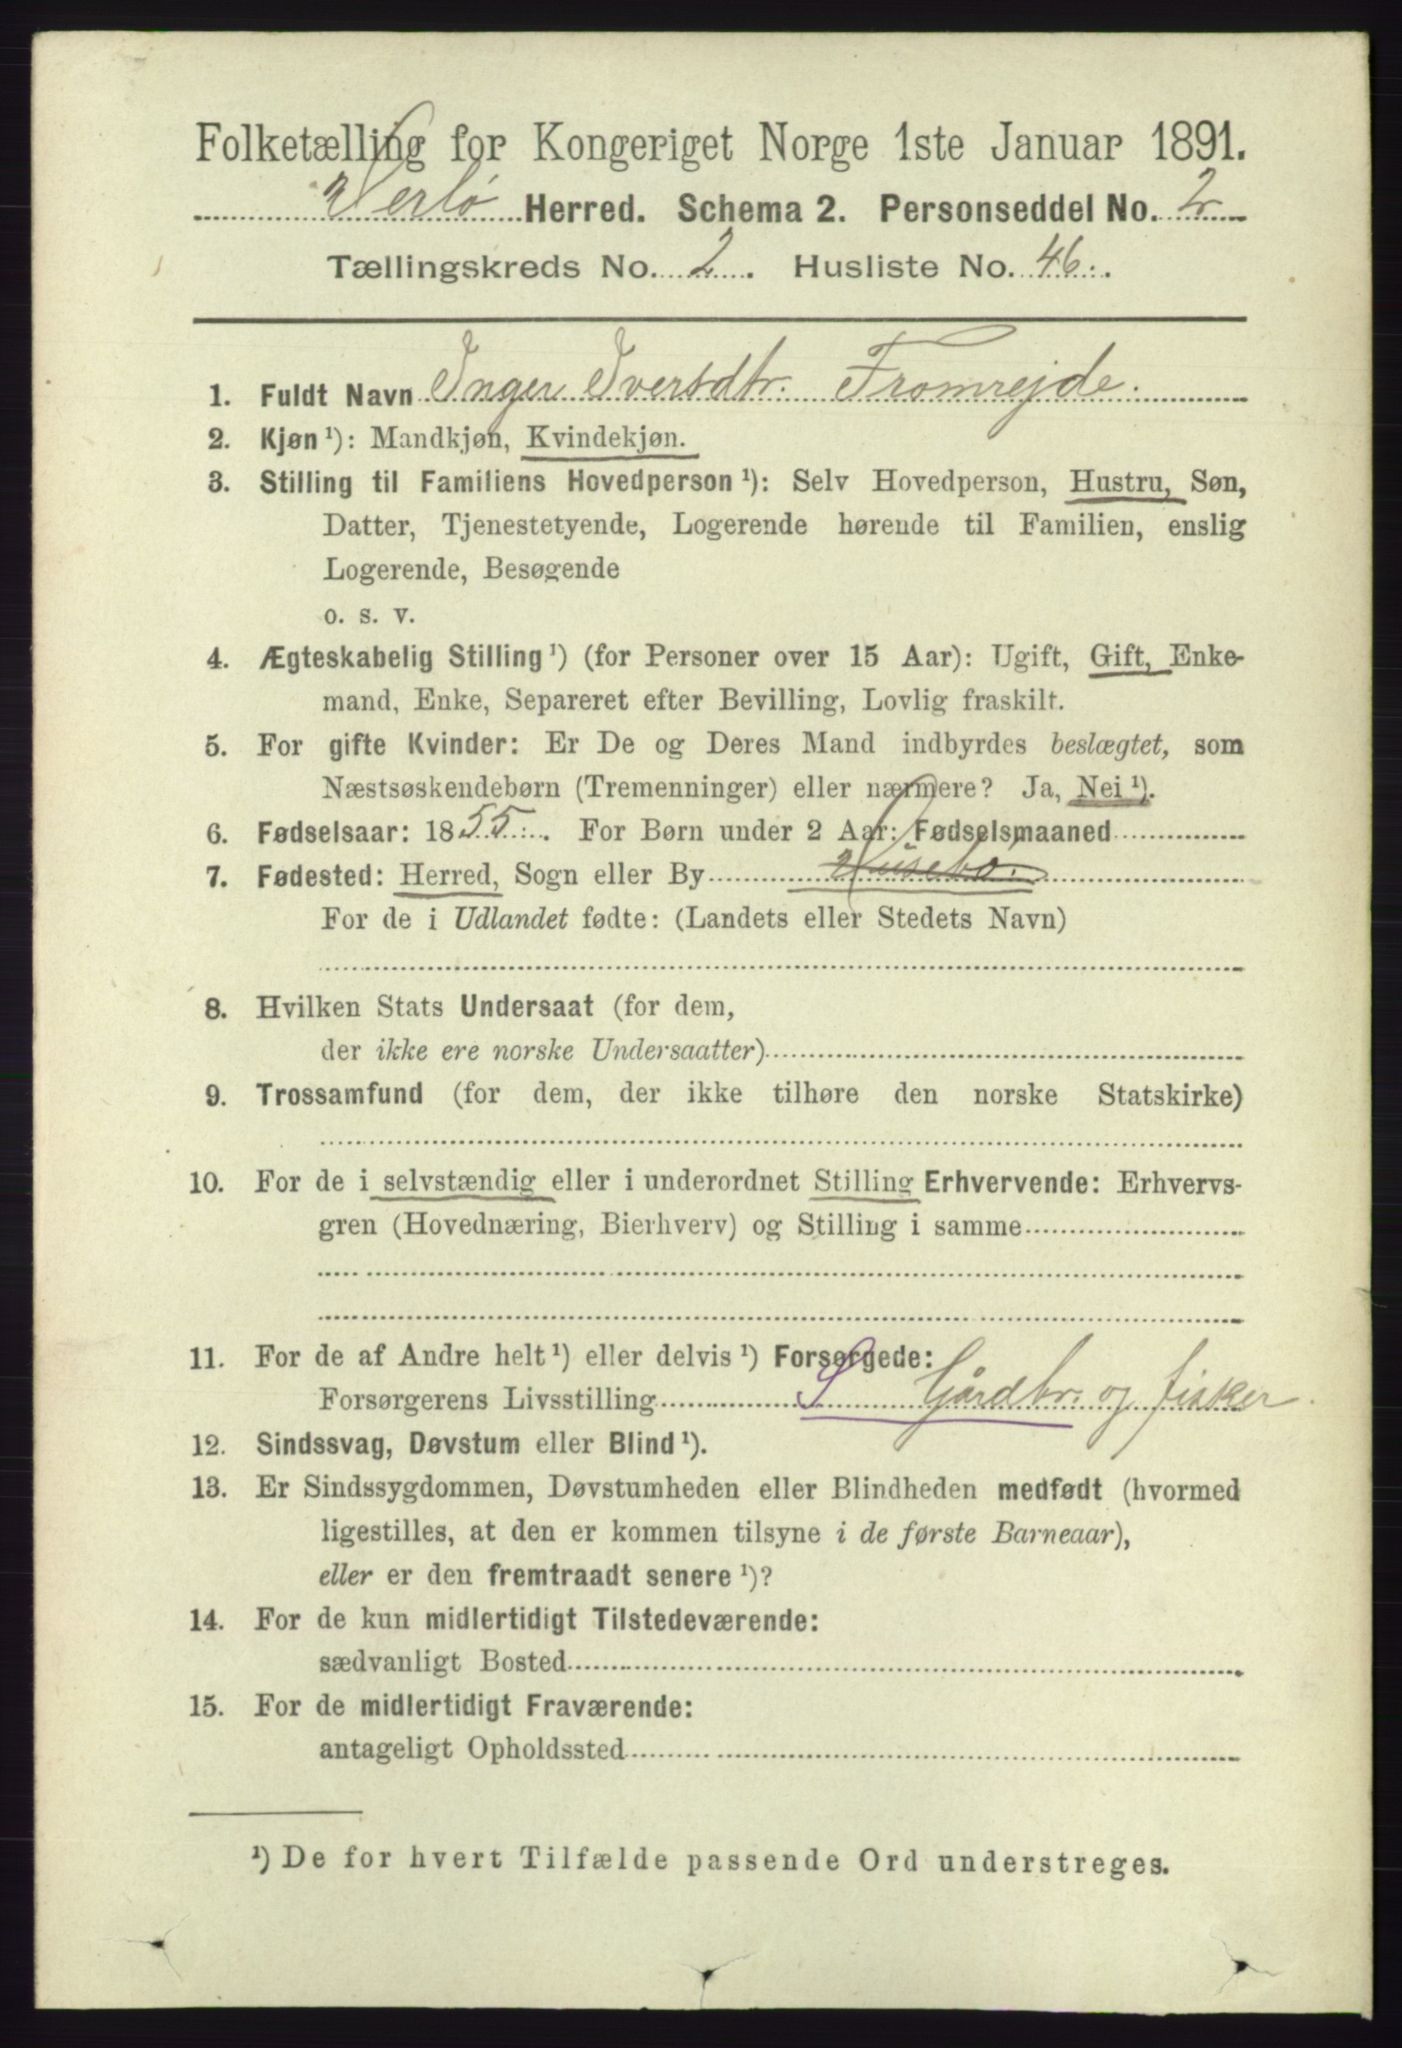 Folketælling for Kongeriget Norge 1ste Januar 1891.
Herlø Herred. Schema 2. Personseddel No. 2
Tællingskreds No. 2. Husliste No. 46.
1. Fuldt Navn Inger Iversdtr. Fromrejde.
2. Kjøn ¹): Mandkjøn, Kvindekjøn.
3. Stilling til Familiens Hovedperson ¹): Selv Hovedperson, Hustru, Søn,
Datter, Tjenestetyende, Logerende hørende til Familien, enslig
Logerende, Besøgende
o. s. v.
4. Ægteskabelig Stilling ¹) (for Personer over 15 Aar): Ugift, Gift, Enke-
mand, Enke, Separeret efter Bevilling, Lovlig fraskilt.
5. For gifte Kvinder: Er De og Deres Mand indbyrdes beslægtet, som
Næstsøskendebørn (Tremenninger) eller nærmere? Ja, Nei ¹).
6. Fødselsaar: 1855. For Børn under 2 Aar: Fødselsmaaned
7. Fødested: Herred, Sogn eller By Husebø.
For de i Udlandet fødte: (Landets eller Stedets Navn)
8. Hvilken Stats Undersaat (for dem,
der ikke ere norske Undersaatter)
9. Trossamfund (for dem, der ikke tilhøre den norske Statskirke)
10. For de i selvstændig eller i underordnet Stilling Erhvervende: Erhvervs-
gren (Hovednæring, Bierhverv) og Stilling i samme
11. For de af Andre helt ¹) eller delvis ¹) Forsørgede:
Forsørgerens Livsstilling S Gårdbr. og fisker
12. Sindssvag, Døvstum eller Blind ¹).
13. Er Sindssygdommen, Døvstumheden eller Blindheden medfødt (hvormed
ligestilles, at den er kommen tilsyne i de første Barneaar),
eller er den fremtraadt senere ¹)?
14. For de kun midlertidigt Tilstedeværende:
sædvanligt Bosted
15. For de midlertidigt Fraværende:
antageligt Opholdssted
¹) De for hvert Tilfælde passende Ord understreges.